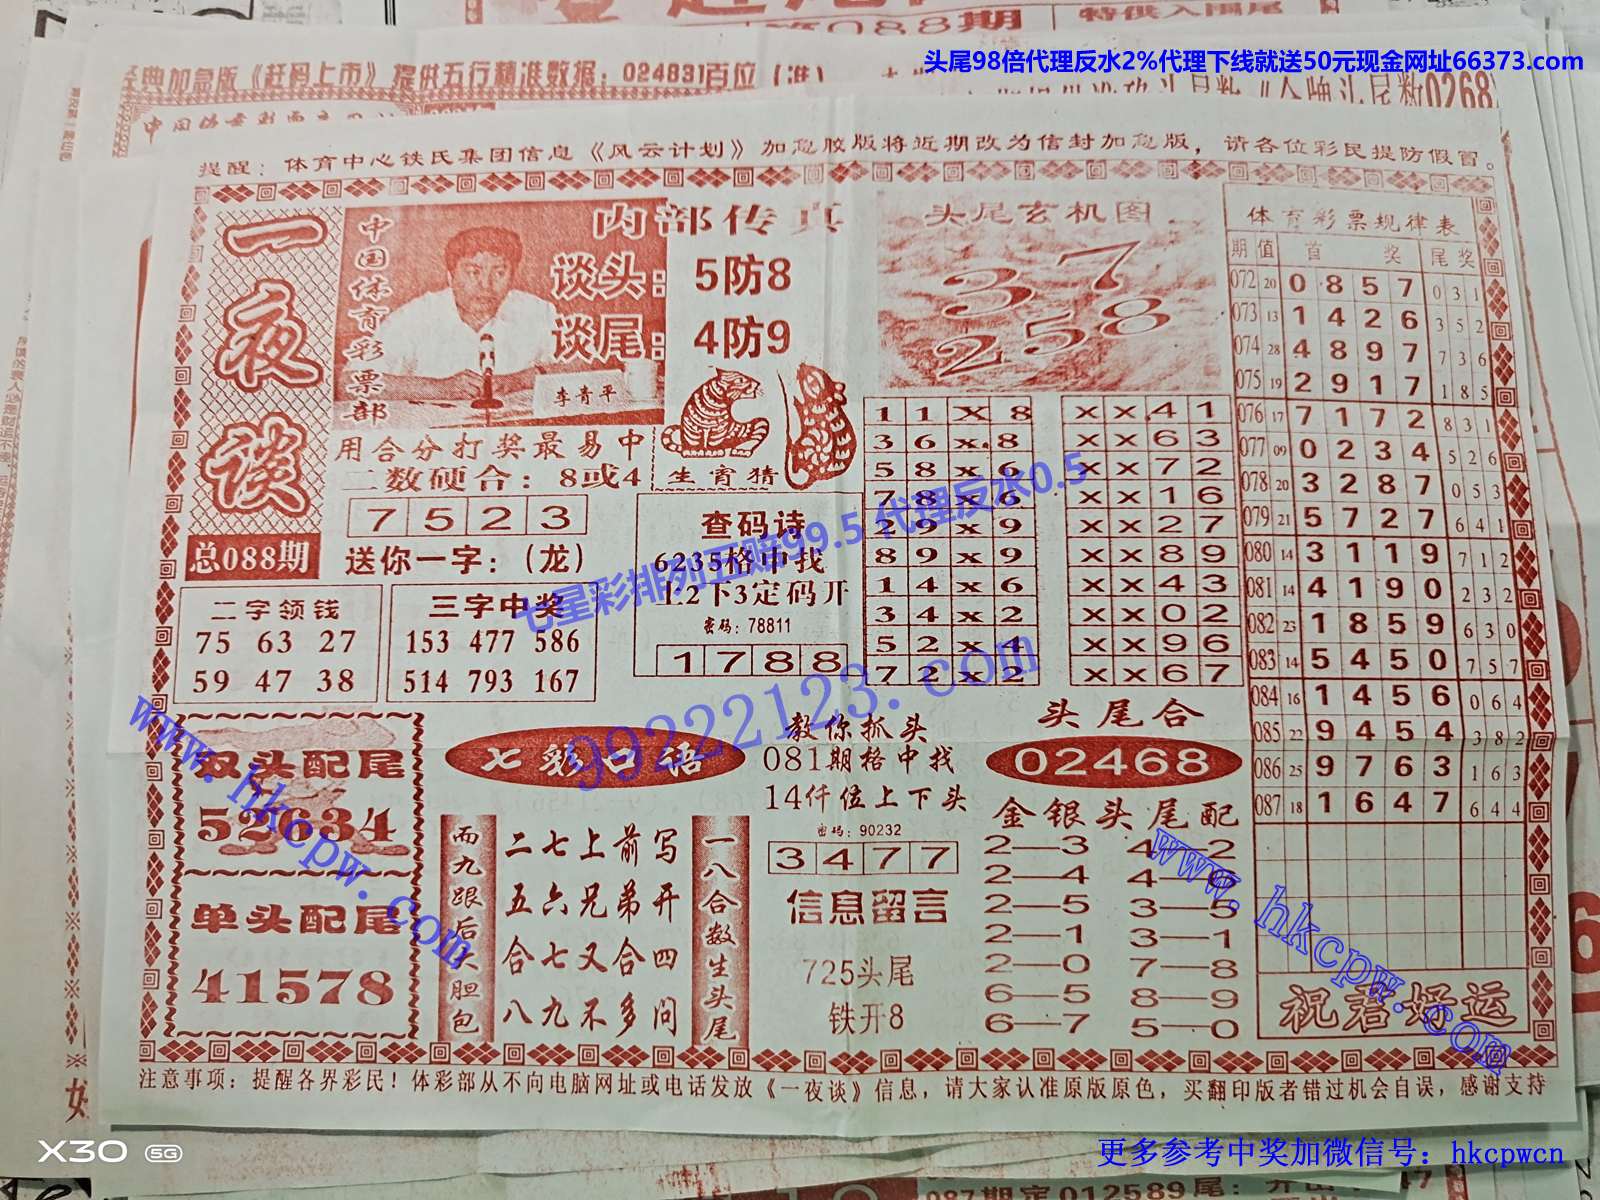 第088期
特供入围尾
头尾98倍代理反水2%代理下线就送50元现金网址66373.com
经典加急版《赶码上市》提供五行精准数据：024831百位（准）
0268
提醒：体育中心铁氏集团信息《风云计划》加急胶版将近期改为信封加急版，请各位彩民提防假冒。
一夜谈
总088期
中国体育彩票部
内部传真
谈头：5防8
谈尾：4防9
李青平
用合分打奖最易中
二数硬合：8或4
7 5 2 3
送你一字：（龙）
生宵猜
头尾玄机图
37
258
查码诗
6235格中找
上2下3定码开
密码：78811
1 7 8 8
二字领钱
75 63 27
59 47 38
三字中奖
153 477 586
514 793 167
1 1 x 8
3 6 x 8
5 8 x 6
7 8 x 6
2 9 x 9
8 9 x 9
1 4 x 6
3 4 x 2
5 2 x 4
7 2 x 2
x x 4 1
x x 6 3
x x 7 2
x x 1 6
x x 2 7
x x 8 9
x x 4 3
x x 0 2
x x 9 6
x x 6 7
体育彩票规律表
期 值 首 奖 尾 奖
072 20 0 8 5 7 0 3 1
073 13 1 4 2 6 3 5 2
074 28 4 8 9 7 7 3 6
075 19 2 9 1 7 1 8 5
076 17 7 1 7 2 8 3 1
077 09 0 2 3 4 5 2 6
078 20 3 2 8 7 0 5 3
079 21 5 7 2 7 6 4 1
080 14 3 1 1 9 7 1 2
081 14 4 1 9 0 2 3 2
082 23 1 8 5 9 6 3 0
083 14 5 4 5 0 7 5 7
084 16 1 4 5 6 0 6 4
085 22 9 4 5 4 3 8 2
086 25 9 7 6 3 1 6 3
087 18 1 6 4 7 6 4 4
祝君好运
双头配尾
52634
单头配尾
41578
七彩口语
而九跟后大胆包
二七上前写
五六兄弟开
合七又合四
八九不多问
一八合数生头尾
教你抓头
081期格中找
14仟位上下头
密码：90232
3 4 7 7
信息留言
725头尾
铁开8
头尾合
02468
金银头尾配
2—3 4—2
2—4 4—9
2—5 3—5
2—1 3—1
2—0 7—8
6—5 8—9
6—7 5—0
注意事项：提醒各界彩民！体彩部从不向电脑网址或电话发放《一夜谈》信息，请大家认准原版原色，买翻印版者错过机会自误，感谢支持
七星彩排列五赔99.5 代理反水0.5
99222123.com
www.hkcpw.com
www.hkcpw.com
X30 5G
更多参考中奖加微信号：hkcpwcn
087期定012589尾：